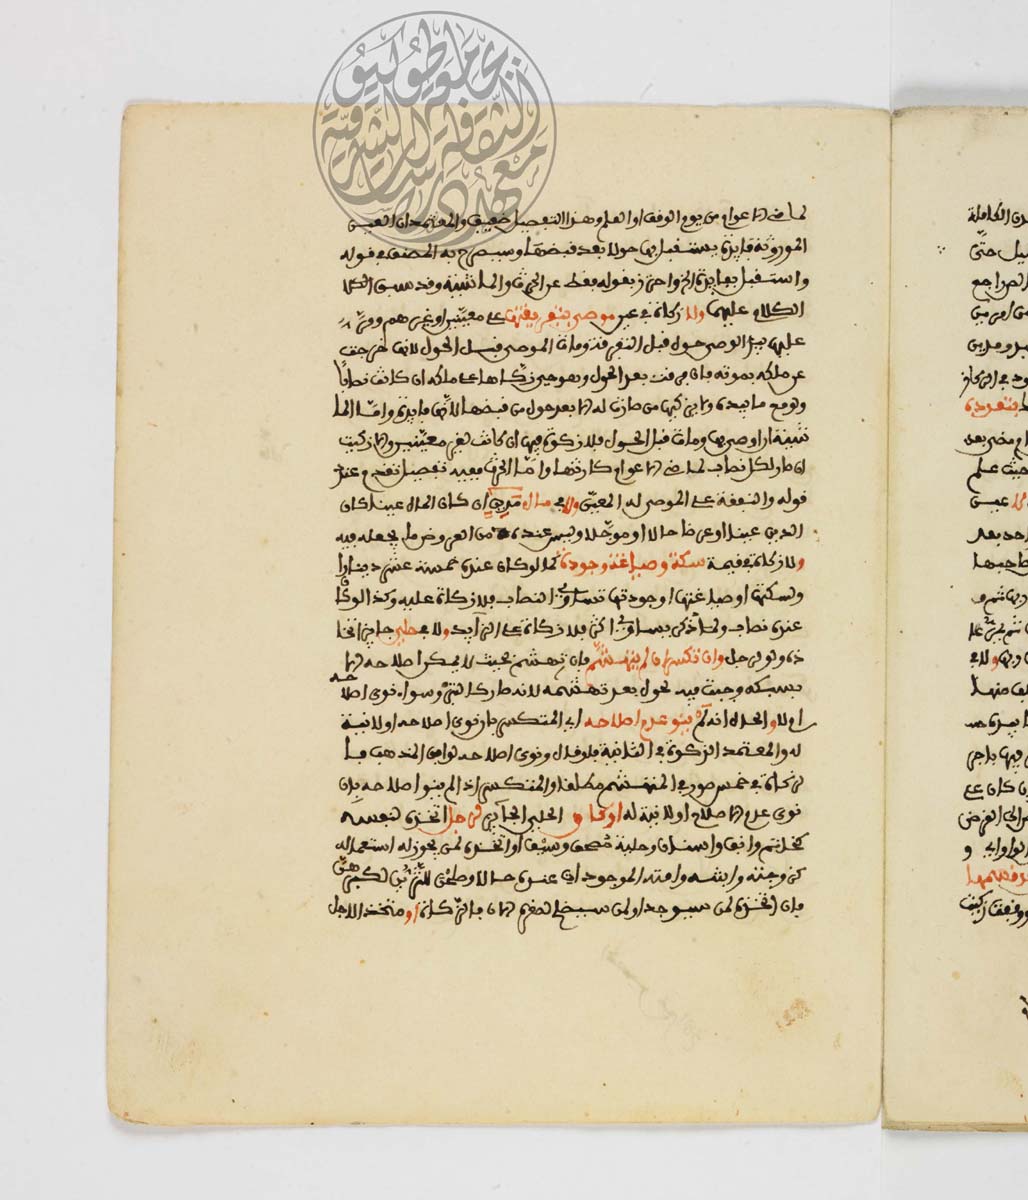 لما ضى الاعوام من يوم الوقف او العلم وهذا التفصيل ضعيف والمعتمد ان العين
الموروثة فايدة يستقبل بها حولا بعد قبضها وسيصرح به المصنف في قوله
واستقبل بفايدة الخ واحترز بقوله فقط عن الحرث والماشية وقد سبق الكلا
الكلام عليها ولا زكاة في عين موصى بتفرقتها على معينين او غيرهم ومر
عليها بيد الوصي حول قبل التفرقة ومات الموصي قبل الحول لانها خرجت
عن ملكه بموته فان فرقت بعد الحول وهو حي زكاها على ملكه ان كانت نصابا
ولو مع ما بيده ولا يزكيها من صارت له الا بعد حول من قبضها لانها فايدة واما الما
شية ان اوصى بها ومات قبل الحول فلا زكوة فيها ان كانت لغير معينين والا زكيت
ان صار لكل نصاب لما ضى الاعوام كارثها واما الحرث ففيه تفصيل تقدم عند
قوله والنفقة على الموصى له المعين ولا في مال مدين ان كان المال عينا كان
الدين عينا او عرضا حالا او موجلا وليس عنده من العروض ما يجعله فيه
ولا زكاة في قيمة سكة وصياغة وجودة كما لو كان عنده خمسة عشر دينارا
ولسكتها او صياغتها او جودتها تساوي النصاب فلا زكاة عليه وكذا لو كا
عنده نصاب ولما ذكر يساوي اكثر فلا زكاة على الزايد ولا في حلي جايز اتخا
ذه ولو لرجل وان تكسر ان لم يتهشم فان تهشم بحيث لا يمكن اصلاحه الا
بسبكه وجبت فيه لحول بعد تهشمه لانه صار كالتبر وسواء نوى اصلاحه
ام لا والحال انه لم ينو عدم اصلاحه اي المتكسر بان نوى اصلاحه او لا نية
له والمعتمد الزكوة في الثانية فلو قال ونوى اصلاحه لوافق المذهب فا
لزكاة في خمس صور في المتهشم مطلقا والمتكسر اذا لم ينو اصلاحه بان
نوى عدم الاصلاح او لا نية له او كان الحلي الجايز لرجل اتخذه لنفسه
كخاتم وانف واسنان وحلية مصحف وسيف او اتخذه لمن يجوز له استعماله
كزوجته وابنته وامته الموجود اي عنده حالا وصلحن للتزين لكبرهن
فان اتخذه لمن سيوجد او لمن سيصلح لصغره الان فالزكاة او متخذ لاجل